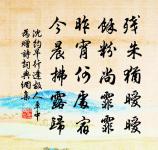 残朱猶曖曖
餘粉尚霏霏
昨宵何處宿
今晨拂露歸
沈約早行逢故人車中
為贈詩詞典網集